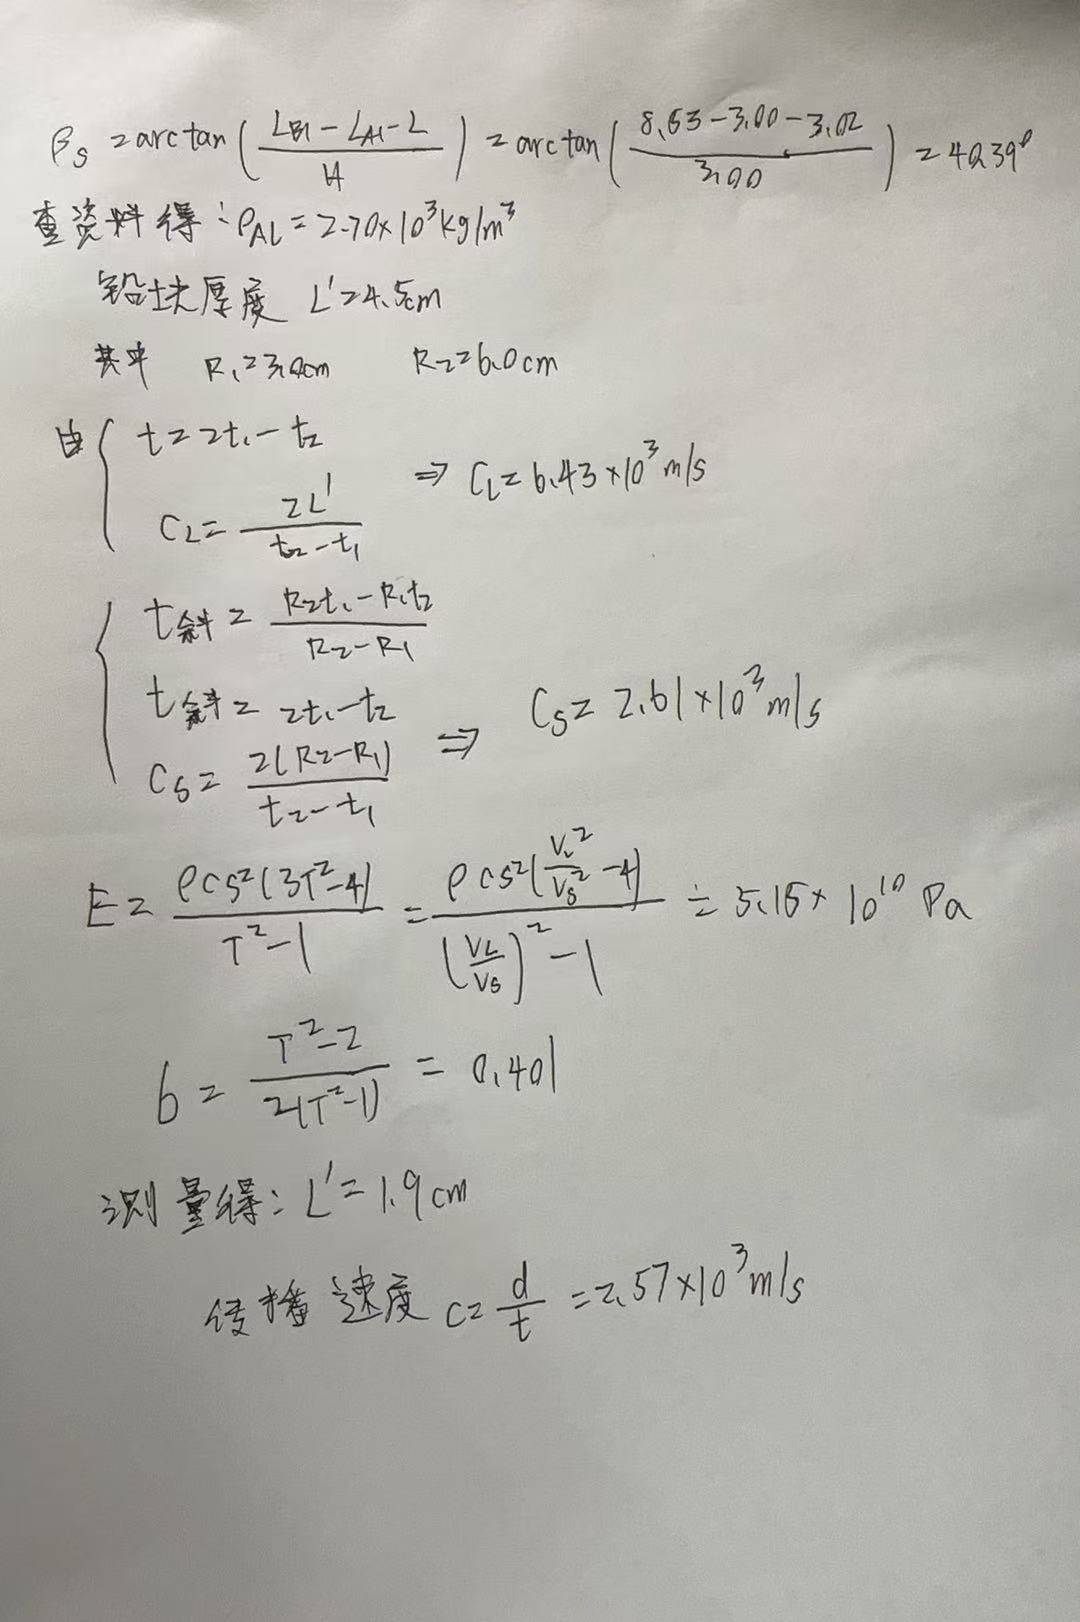 βs = arctan ( (L_B1 - L_A1 - L) / H ) = arctan ( (8.53 - 3.00 - 3.02) / 3.00 ) = 40.39°
查资料得: ρ_AL = 2.70×10³kg/m³
铅块厚度 L' = 4.5cm
其中 R₁ = 3.0cm R₂ = 6.0cm
由 { t = 2t₁ - t₂
C_L = 2L' / (t₂ - t₁) ⇒ C_L = 6.43×10³m/s
{ t斜 = (R₂t₁ - R₁t₂) / (R₂ - R₁)
t斜 = 2t₁ - t₂
C_S = 2(R₂ - R₁) / (t₂ - t₁) ⇒ C_S = 2.61×10³m/s
E = ρC_S²(3T² - 4) / (T² - 1) = ρC_S²(V_L²/V_S² - 4) / ((V_L/V_S)² - 1) = 5.15×10¹⁰Pa
6 = (T² - 2) / 2(T² - 1) = 0.401
测量得: L' = 1.9cm
传播速度 C = d/t = 2.57×10³m/s